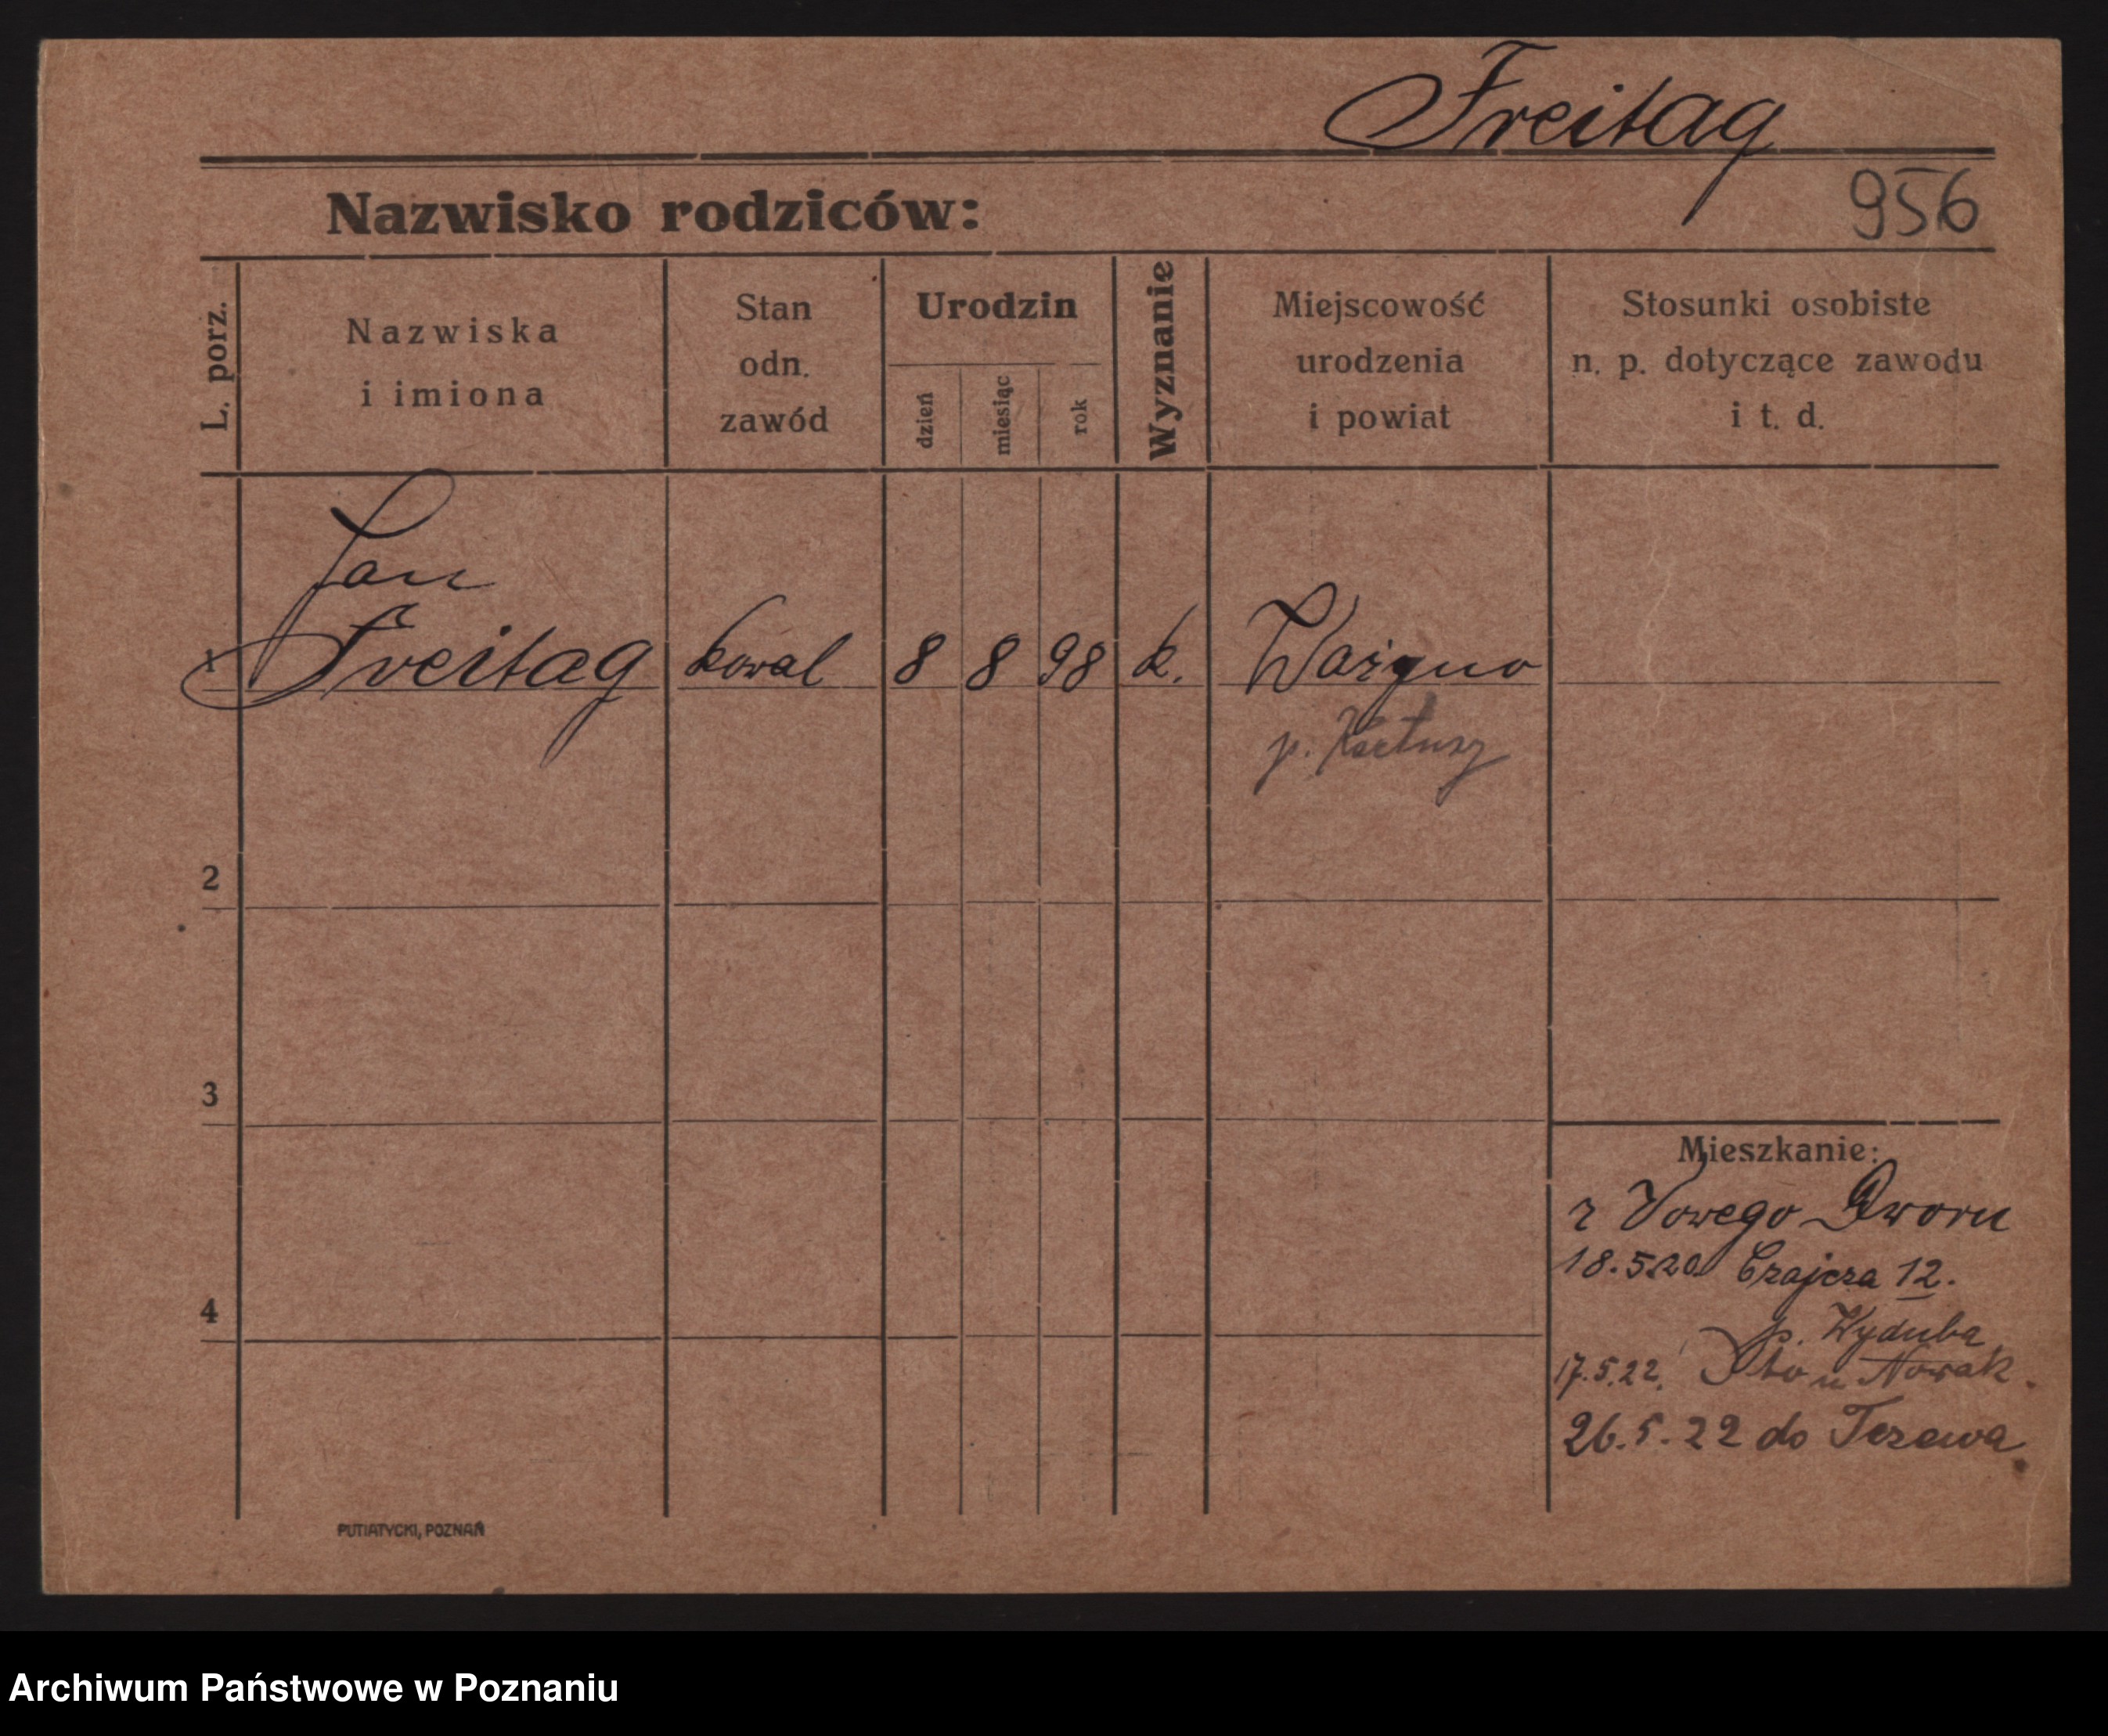 Freitag
Nazwisko rodziców:
956
L. porz.
Nazwiska
i imiona
Stan
odn.
zawód
Urodzin
dzień
miesiąc
rok
Wyznanie
Miejscowość
urodzenia
i powiat
Stosunki osobiste
n. p. dotyczące zawodu
i t. d.
Jan
1 Freitag kowal 8 8 98 k.
p. Kartuzy
2
3
4
Mieszkanie:
z Nowego Dworu
18.5.20 Czajcza 12.
p. Wyduba
17.5.22. u Nowak.
26.5.22 do Tczewa
PUTIATYCKI, POZNAŃ
Archiwum Państwowe w Poznaniu